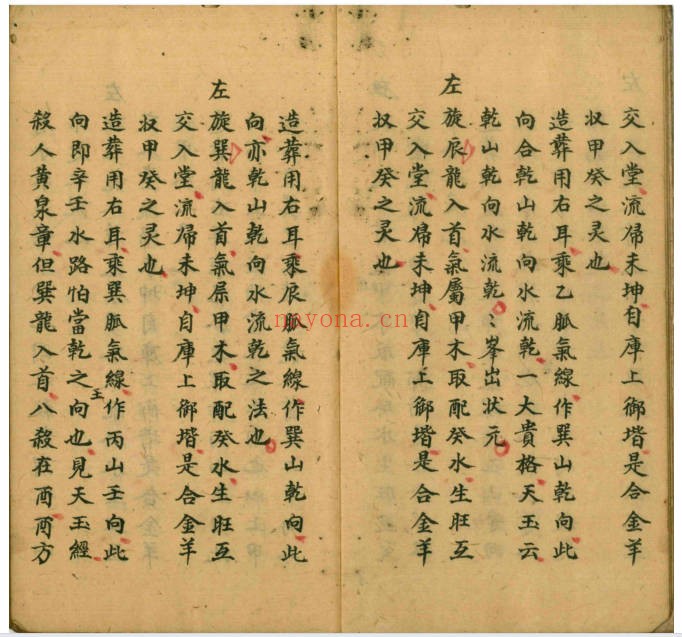 交入堂流㷌未坤自庫上御堦是合金羊
収甲癸之灵也
造葬用右耳乘乙脈氣線作巽山乾向此
向合乾山乾向水流乾大貴格天玉云
乾山乾向水流乾〻峯出状元
左
旋辰龍入首氣屬甲木取配癸水生旺互
交入堂流㷌未坤自庫上御堦是合金羊
収甲癸之灵也
造葬用右耳乘辰脈氣線作巽山乾向此
向亦乾山乾向水流乾之法也
左
旋巽龍入首氣屬甲木取配癸水生旺互
交入堂流㷌未坤自庫上御堦是合金羊
収甲癸之灵也
造葬用右耳乘巽脈氣線作丙山壬向此
向即辛壬水路怕當乾之向也見天玉經
王
殺人黄泉章但巽龍入首八殺在酉酉方
nayona.cn